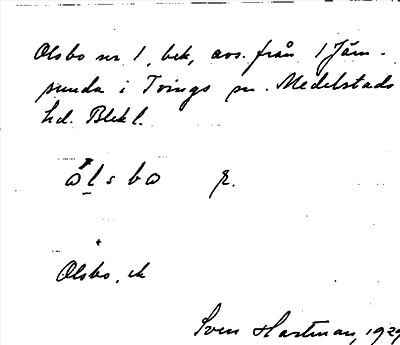 Olsbo nr 1, bek, avs. från 1 Jäm-
sunda i Tvings sn. Medelstads
hd. Blekl.
ålsbo r.
Olsbo, ek
Sven Hartman, 1929